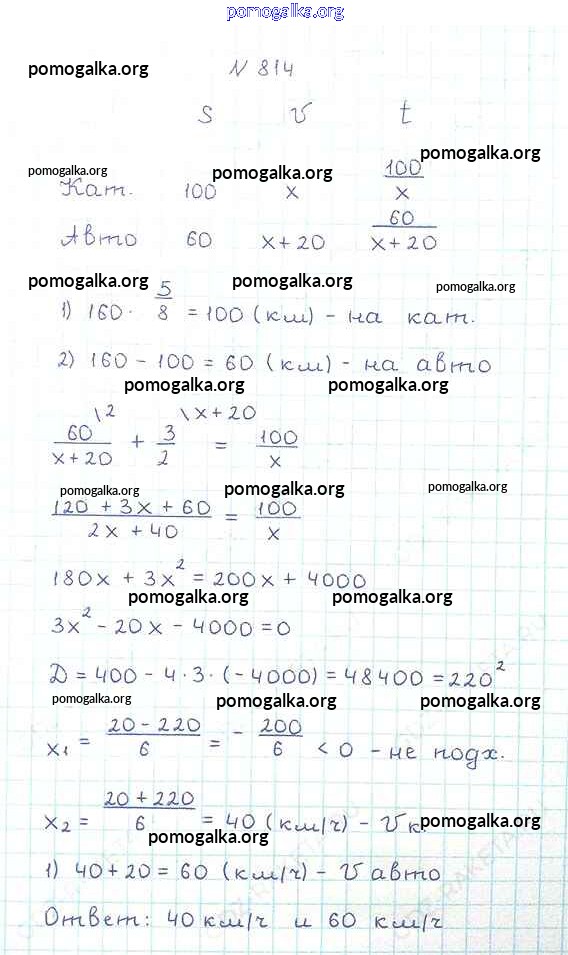 pomogalka.org
pomogalka.org
N 814
S V t
pomogalka.org
pomogalka.org
pomogalka.org
Кат. 100 x 100/x
Авто 60 x+20 60/(x+20)
pomogalka.org pomogalka.org pomogalka.org
1) 160 · 5/8 = 100 (км) - на кат.
2) 160 - 100 = 60 (км) - на авто
pomogalka.org pomogalka.org
60/(x+20) \2 + 3/2 \x+20 = 100/x
pomogalka.org pomogalka.org pomogalka.org
(120 + 3x + 60)/(2x + 40) = 100/x
180x + 3x² = 200x + 4000
pomogalka.org pomogalka.org
3x² - 20x - 4000 = 0
Д = 400 - 4·3·(-4000) = 48400 = 220²
pomogalka.org pomogalka.org pomogalka.org
x₁ = (20 - 220)/6 = - 200/6 < 0 - не подх.
x₂ = (20 + 220)/6 = 40 (км/ч) - Vк.
pomogalka.org
pomogalka.org
1) 40 + 20 = 60 (км/ч) - V авто
Ответ: 40 км/ч и 60 км/ч